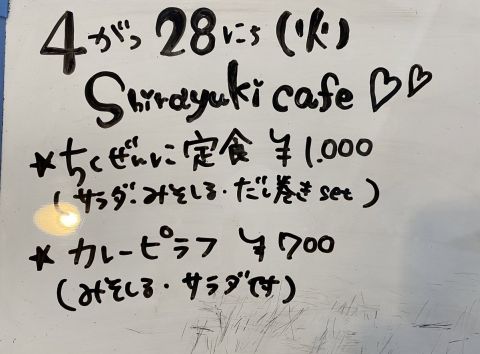 4がつ28にち(火)
Shirayuki cafe ♡♡
★ちくぜんに定食 ¥1.000
(サラダ・みそしる・だし巻きset)
★カレーピラフ ¥700
(みそしる・サラダです)